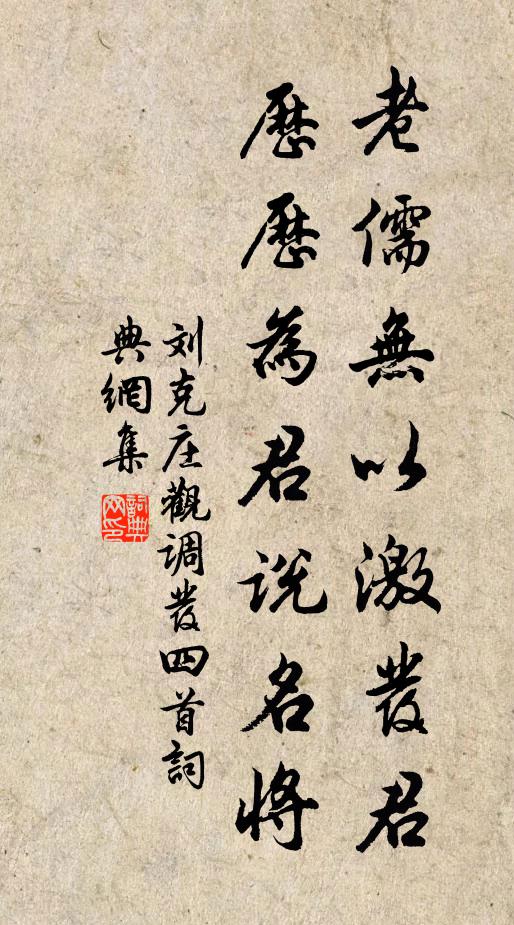 老儒無以激發君
歷歷為君說名將
刘克庄觀调發四首詞
典網集
詞典網印